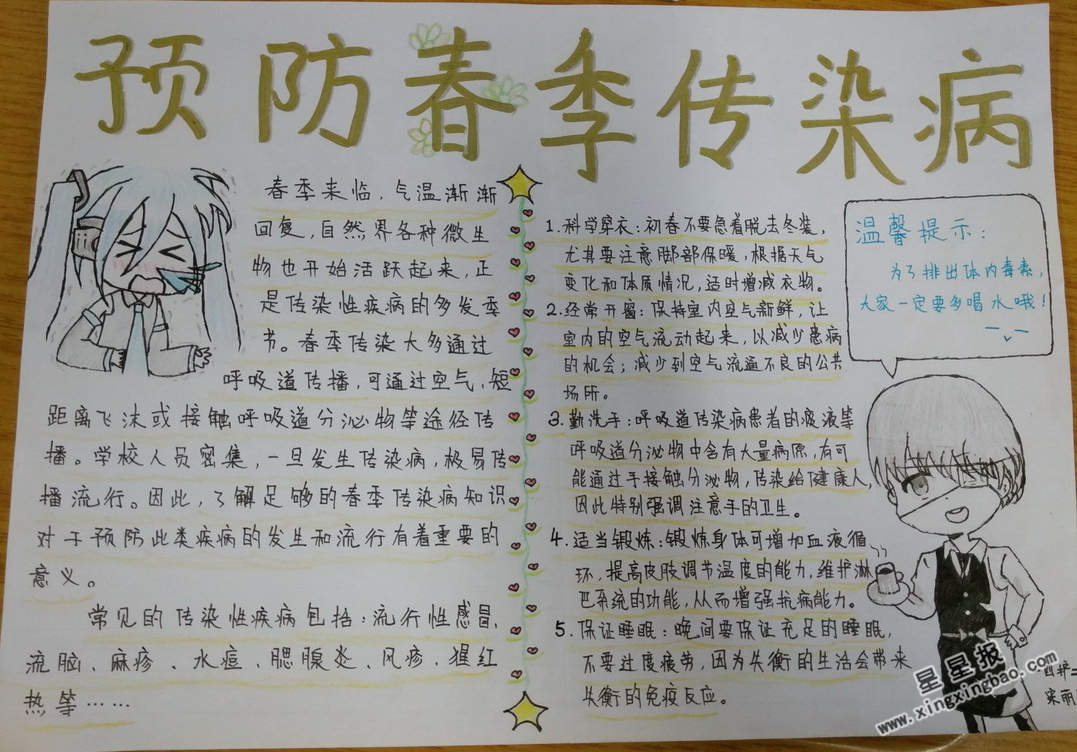 预防春季传染病
春季来临，气温渐渐
回复，自然界各种微生
物也开始活跃起来，正
是传染性疾病的多发季
节。春季传染大多通过
呼吸道传播，可通过空气，短
距离飞沫或接触呼吸道分泌物等途径传
播。学校人员密集，一旦发生传染病，极易传
播流行。因此，了解足够的春季传染病知识
对于预防此类疾病的发生和流行有着重要的
意义。
常见的传染性疾病包括：流行性感冒、
流脑、麻疹、水痘、腮腺炎、风疹、猩红
热等……
1.科学穿衣：初春不要急着脱去冬装，
尤其要注意脚部保暖，根据天气
变化和体质情况，适时增减衣物。
2.经常开窗：保持室内空气新鲜，让
室内的空气流动起来，以减少患病
的机会；减少到空气流通不良的公共
场所。
3.勤洗手：呼吸道传染病患者的痰液等
呼吸道分泌物中含有大量病原，有可
能通过手接触分泌物，传染给健康人，
因此特别强调注意手的卫生。
4.适当锻炼：锻炼身体可增加血液循
环，提高皮肤调节温度的能力，维护淋
巴系统的功能，从而增强抗病能力。
5.保证睡眠：晚间要保证充足的睡眠，
不要过度疲劳，因为失衡的生活会带来
失衡的免疫反应。
温馨提示：
为了排出体内毒素，
大家一定要多喝水哦！
星星报
www.xingxingbao.com